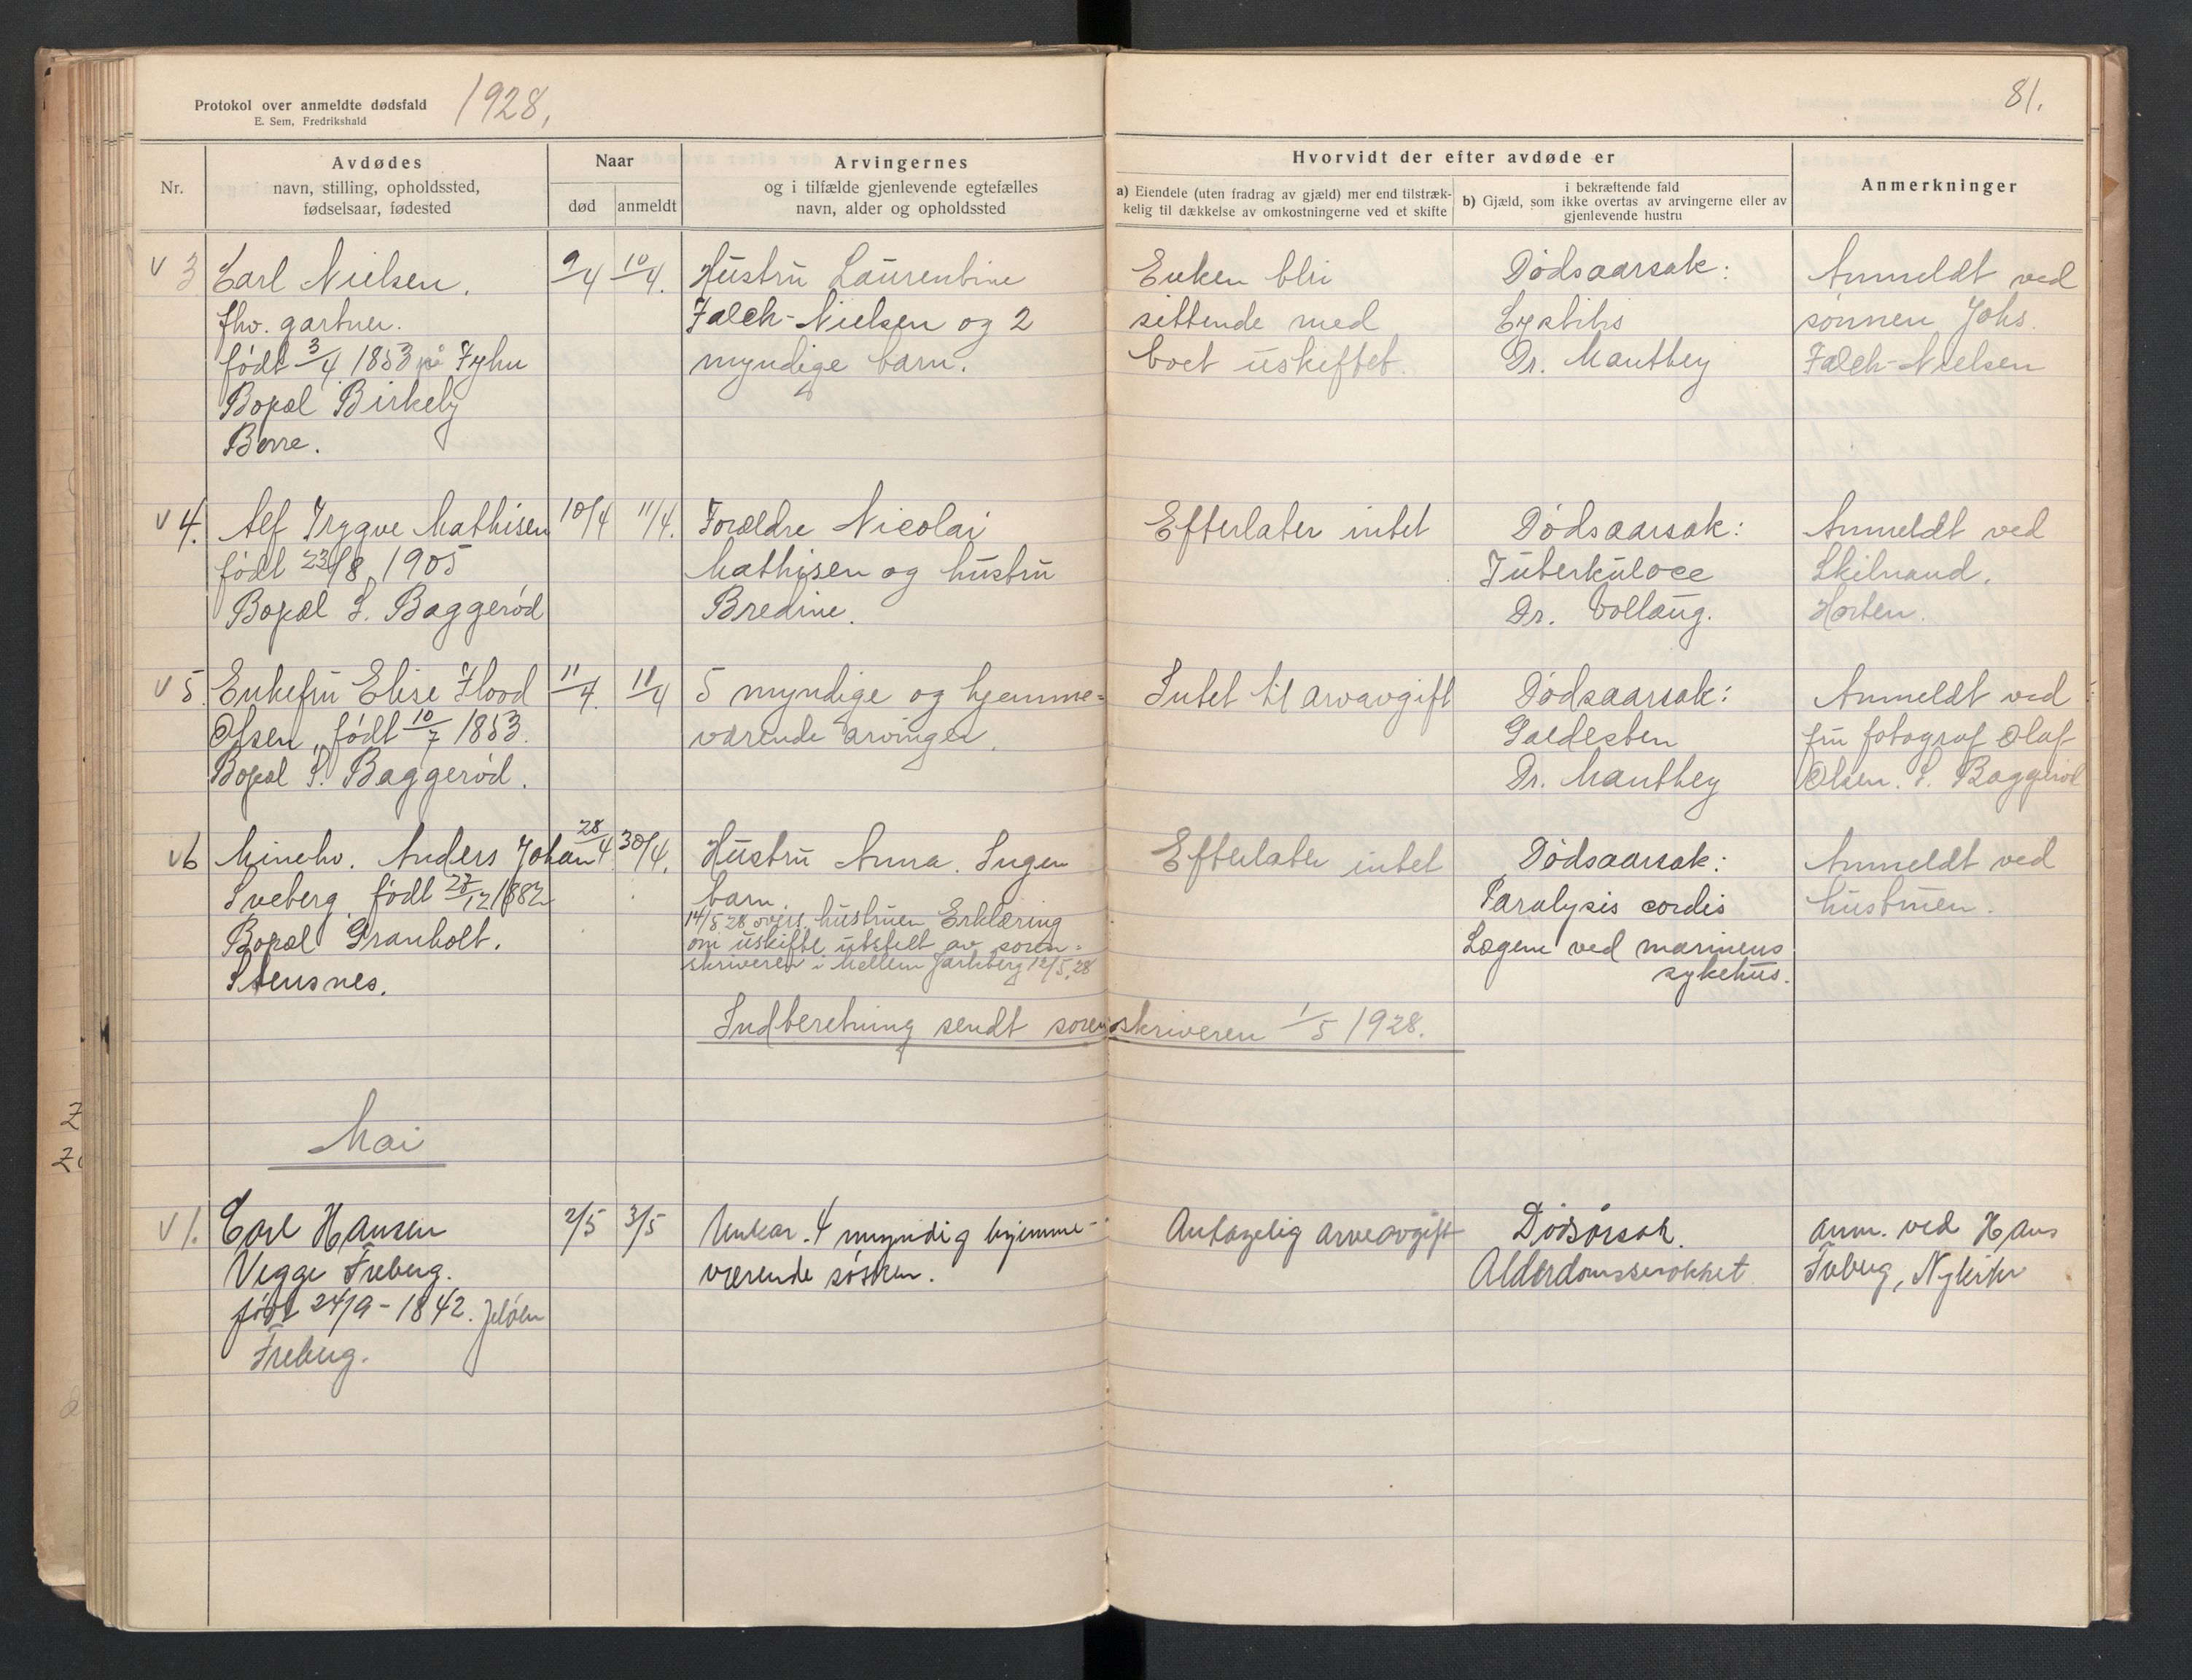 Protokol over anmeldte dødsfald
E. Sem, Fredrikshald
1928,
81.
Nr.
Avdødes
navn, stilling, opholdssted,
fødselsaar, fødested
Naar
død
anmeldt
Arvingernes
og i tilfælde gjenlevende egtefælles
navn, alder og opholdssted
Hvorvidt der efter avdøde er
a) Eiendele (uten fradrag av gjæld) mer end tilstræk-
kelig til dækkelse av omkostningerne ved et skifte
i bekræftende fald
b) Gjæld, som ikke overtas av arvingerne eller av
gjenlevende hustru
Anmerkninger
v 3.
Carl Nielsen.
fhv. gartner.
født 3/4 1853 på Fyhn
Bopæl Birkely
Borre.
9/4
10/4.
Hustru Laurentine
Falch-Nielsen og 2
myndige barn.
Enken bli
sittende med
boet uskiftet.
Dødsaarsak:
Cystitis
Dr. Manthey
Anmeldt ved
sønnen Johs.
Falch-Nielsen
v 4.
Alf Trygve Mathisen
født 23/8 1905
Bopæl S. Baggerød
10/4
11/4.
Forældre Nicolai
Mathisen og hustru
Bredine.
Efterlater intet
Dødsaarsak:
Tuberkulose
Dr. Vollaug.
Anmeldt ved
Horten.
v 5.
Enkefru Elise Flood
Olsen, født 10/7 1853.
Bopæl S. Baggerød.
11/4.
11/4
5 myndige og hjemme=
værende arvinger.
Intet til arvavgift
Dødsaarsak:
Galdesten
Dr. Manthey
Anmeldt ved
fru fotograf Olaf
Olsen. S. Baggerød
v 6
Minehv. Anders Johan
Sveberg født 27/12 1882
Bopæl Granholt.
Stensnes.
28/4
30/4.
Hustru Anna. Ingen
barn.
14/5 28 overs. hustruen Erklæring
om uskifte utstelt av soren=
skriveren i Mellem Jarlsberg 12/5.28
Efterlater intet
Dødsaarsak:
Paralysis cordis
Lægene ved marinens
sykehus.
Anmeldt ved
hustruen.
Indberetning sendt sorenskriveren 1/5 1928.
Mai
v 1.
Carl Hansen
Vegge Freberg.
født 24/9-1842. Jeløen
Freberg.
2/5
3/5
Unkar. 4 myndig hjemme-
værende søsken.
Antagelig arveavgift
Dødsårsak.
Alderdomssvakhet
anm. ved Hans
Freberg, Nykirke